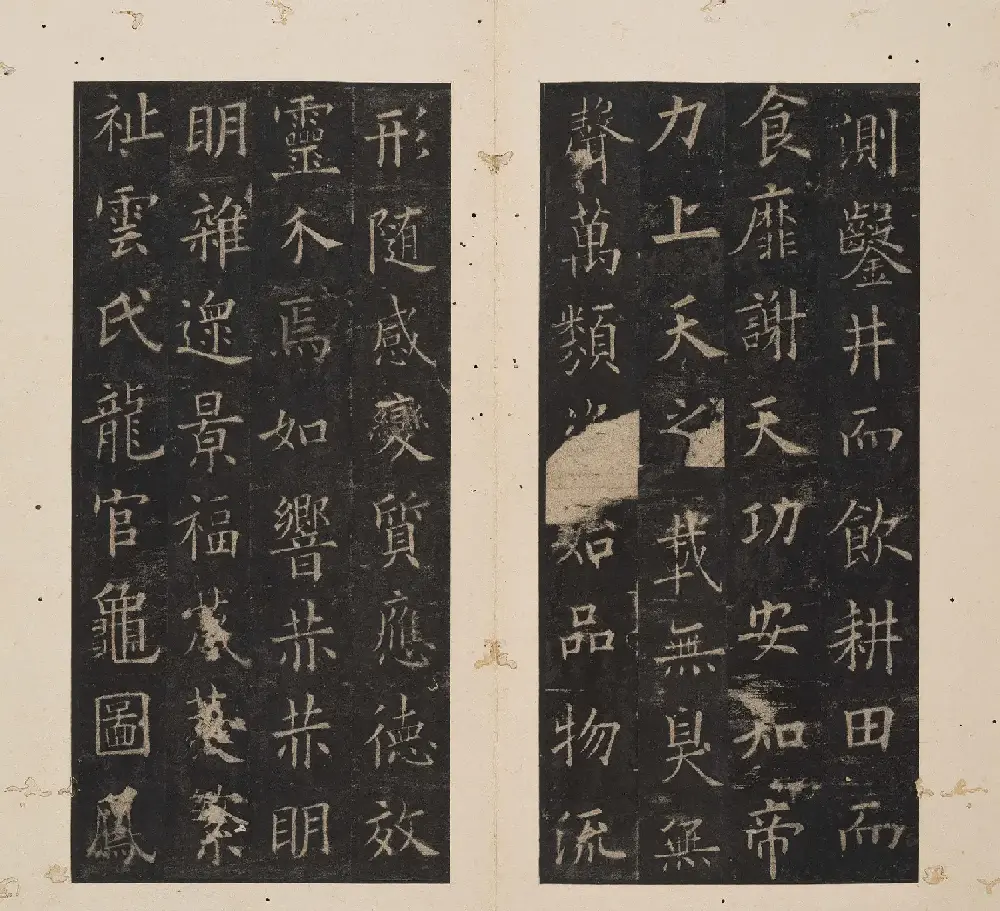 測鑿井而飲耕田而
食靡謝天功安知帝
力上天之載無臭無
聲萬類資始品物流
形隨感變質應德效
靈介焉如響赫赫明
明雜遝景福葳蕤繁
祉雲氏龍官龜圖鳳